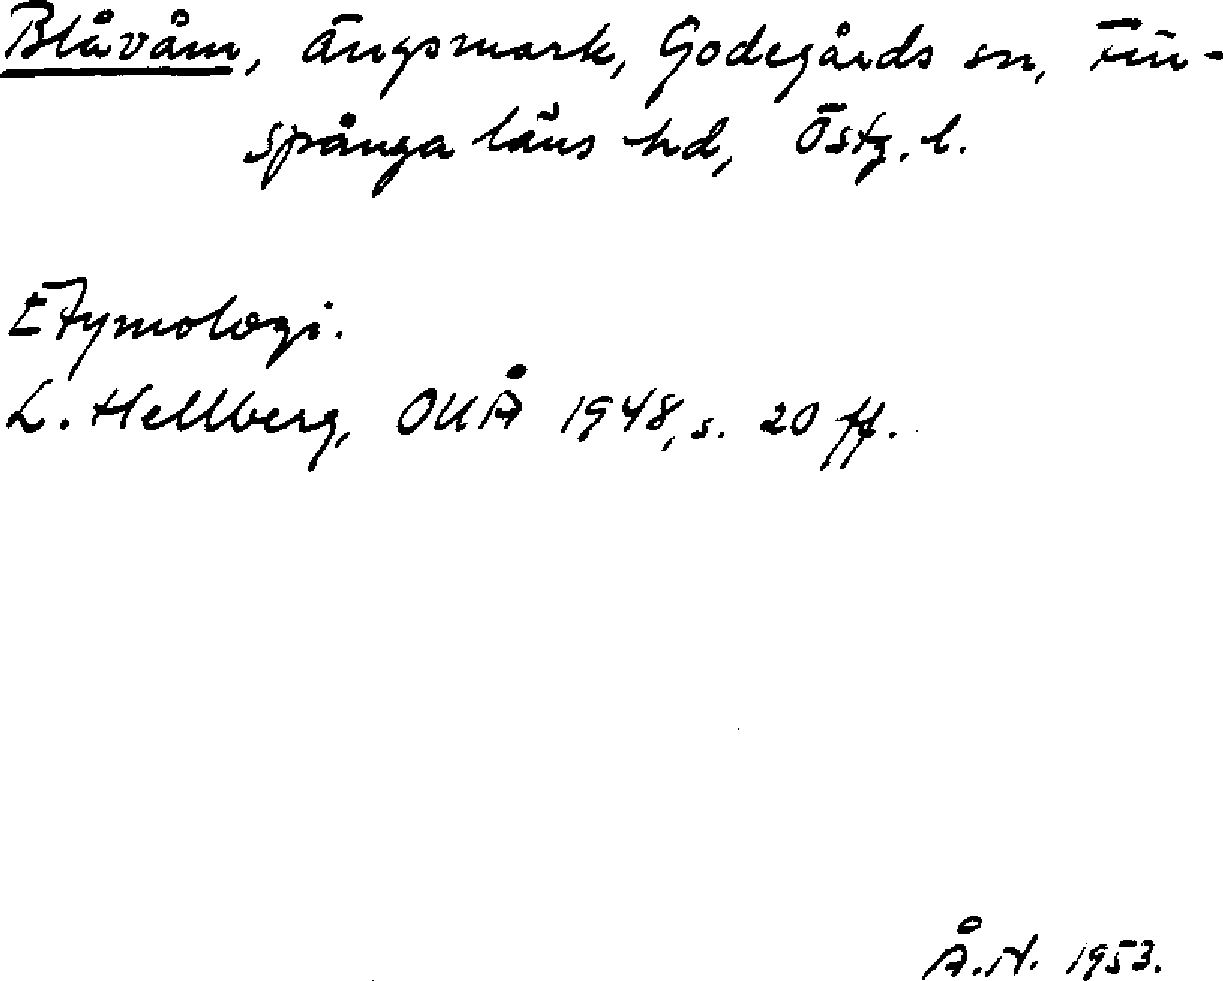 Blåvåm, ängsmark, Godegårds sn, Fin-
spånga läns hd, Östg. l.
Etymologi.
L. Hellberg, OUÅ 1948, s. 20 ff.
Å.N. 1953.